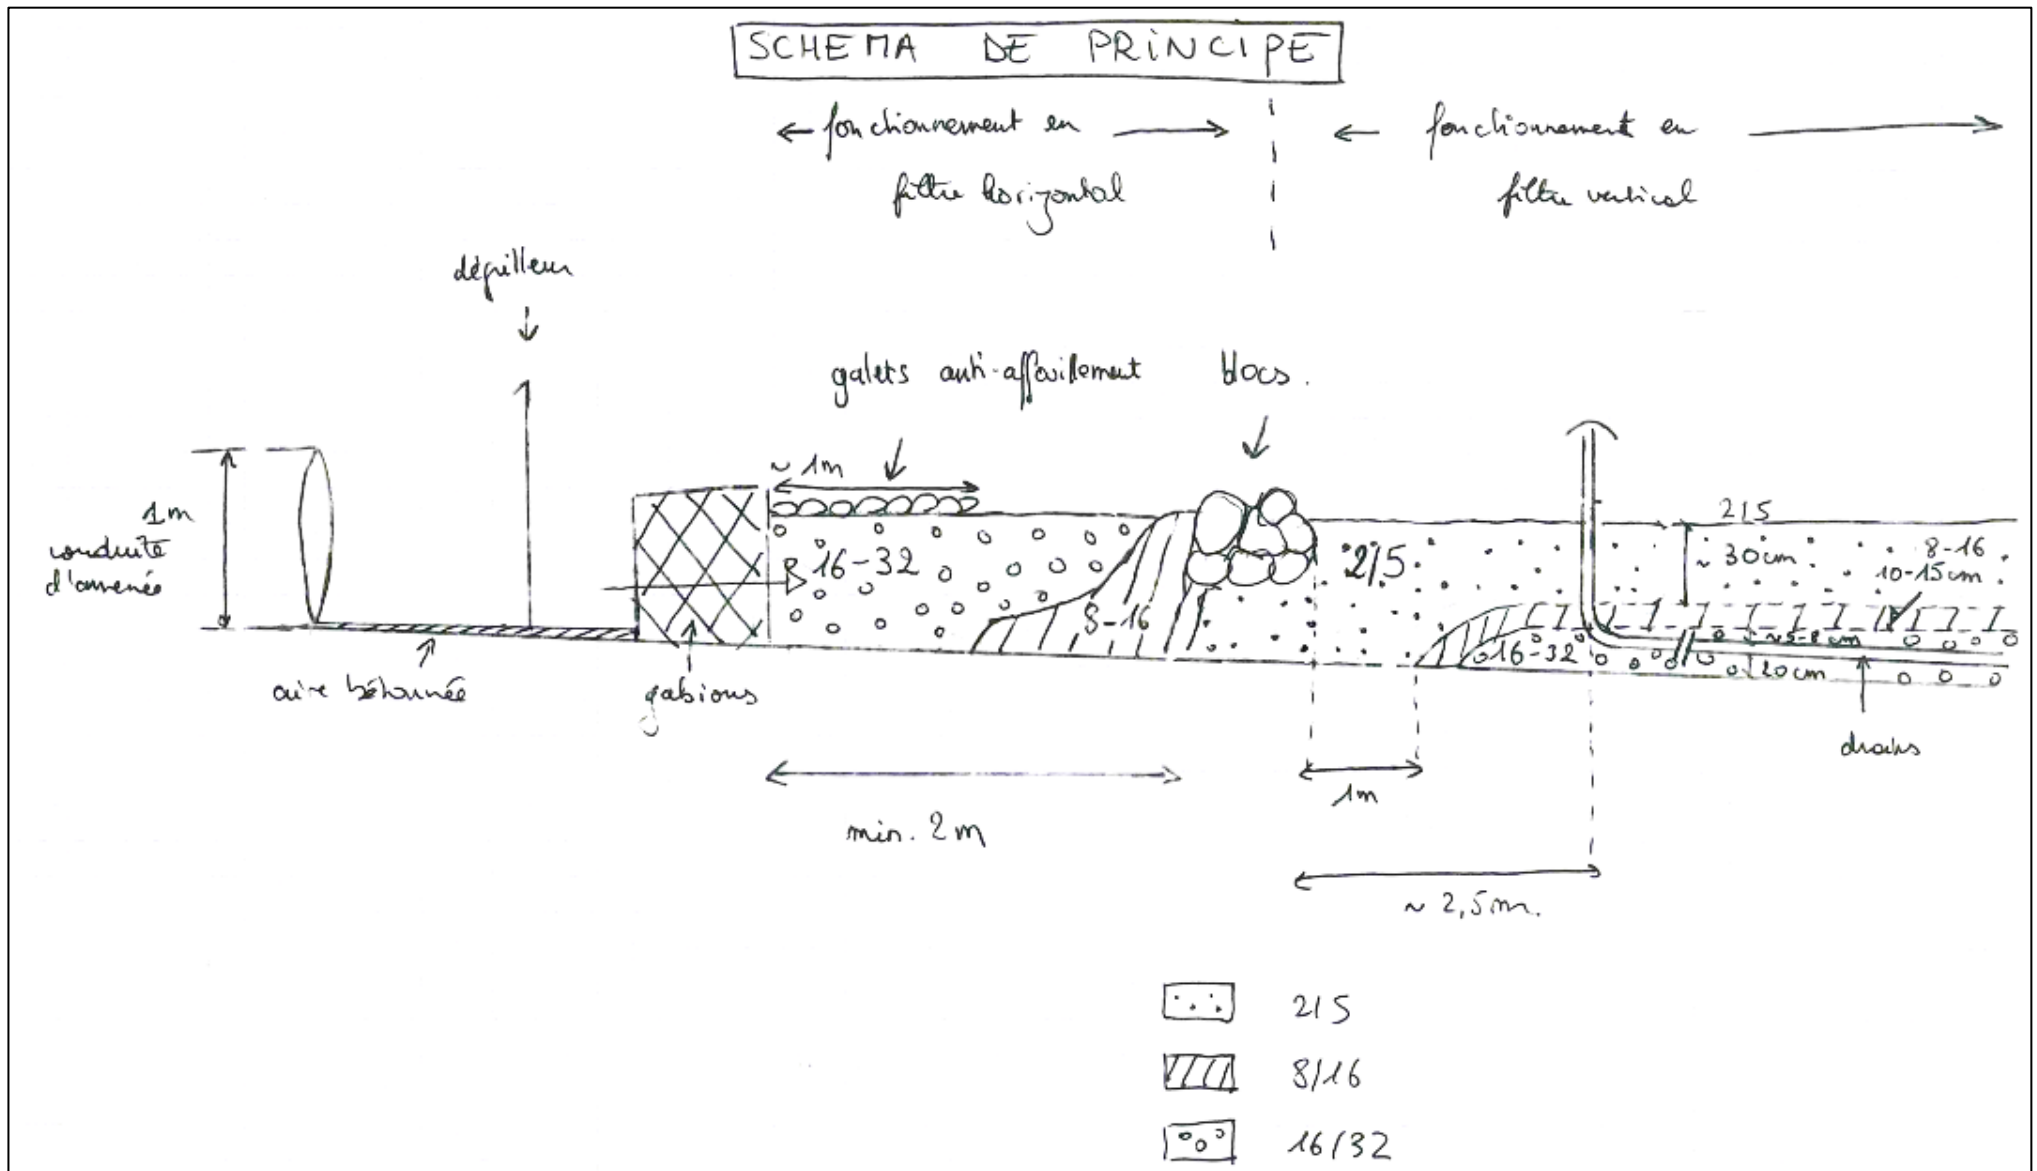 SCHEMA DE PRINCIPE
fonctionnement en
filtre horizontal
fonctionnement en
filtre vertical
dégrilleur
galets anti-affouillement
blocs.
1m
conduite
d'amenée
~ 1m
16-32
8-16
2/5
2/5
~ 30cm
8-16
10-15cm
16-32
~5-8 cm
20cm
aire bétonnée
gabions
drains
min. 2m
1m
~ 2,5m.
2/5
8/16
16/32